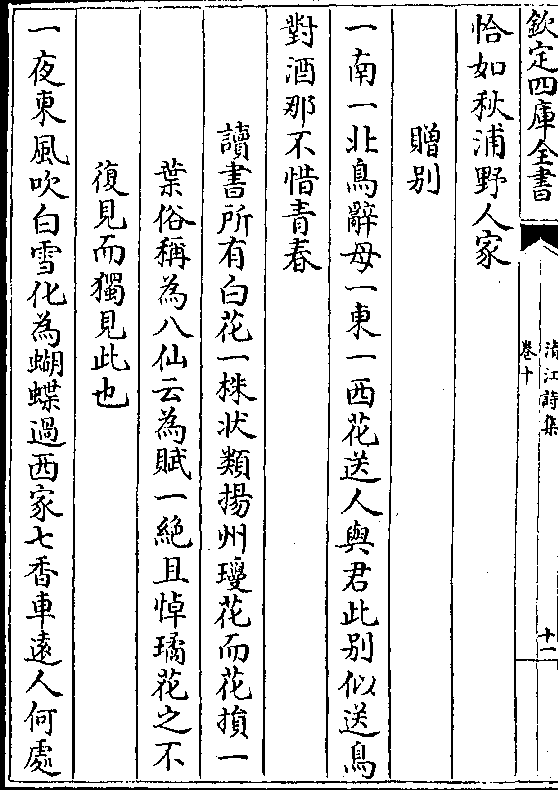 欽定四庫全書
清江詩集
卷十
十一
恰如秋浦野人家
贈別
一南一北鳥辭母一東一西花送人與君此别似送鳥
對酒那不惜青春
讀書所有白花一株狀類揚州瓊花而花損一
葉俗稱為八仙云為賦一絶且悼璚花之不
復見而獨見此也
一夜東風吹白雪化為蝴蝶過西家七香車遠人何處